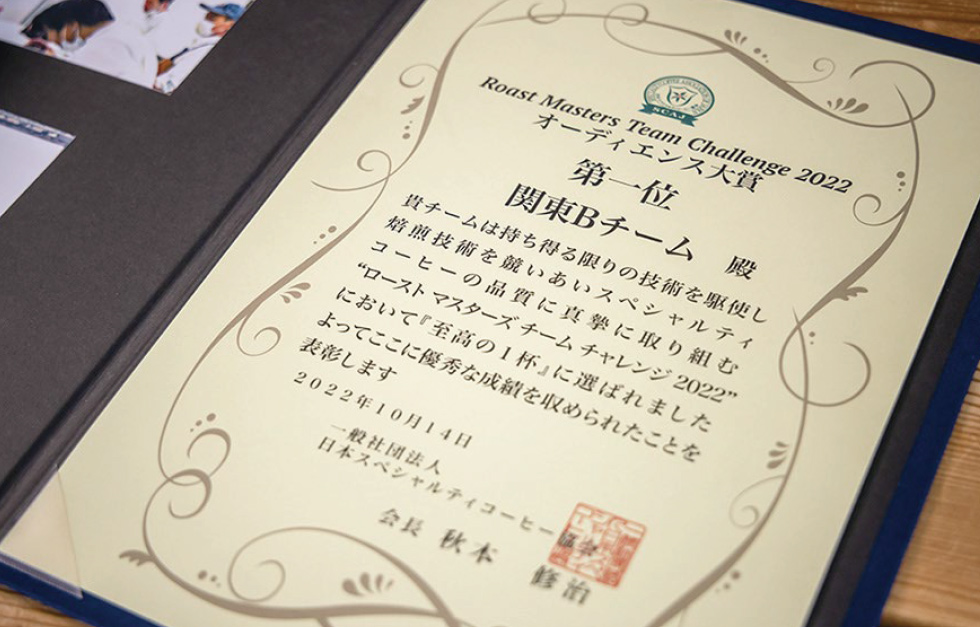 SCAJ
Roast Masters Team Challenge 2022
オーディエンス大賞
第一位
関東Bチーム 殿
貴チームは持ち得る限りの技術を駆使し
焙煎技術を競いあいスペシャルティ
コーヒーの品質に真摯に取り組む
“ローストマスターズチームチャレンジ2022”
において『至高の1杯』に選ばれました
よってここに優秀な成績を収められたことを
表彰します
2022年10月14日
一般社団法人
日本スペシャルティコーヒー協会
会長 秋本 修治